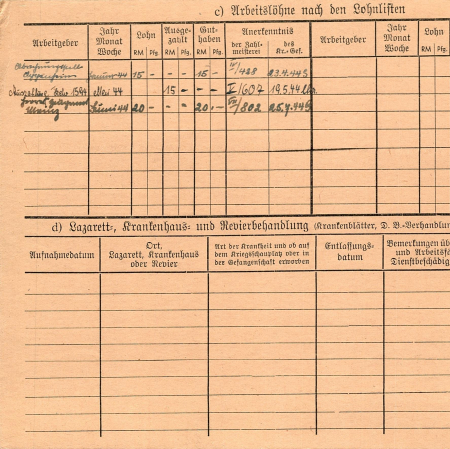 c) Arbeitslöhne nach den Lohnlisten
Arbeitgeber
Jahr
Monat
Woche
Lohn
RM Pfg.
Ausge-
zahlt
RM Pfg.
Gut-
haben
RM Pfg.
Anerkenntnis
der Zahl-
meisterei
des
Kr.-Gef.
Arbeitgeber
Jahr
Monat
Woche
Lohn
RM
Januar 44 15 - - - 15 - /428 23.4.44
Mai 44 15 - - - I/607 19.5.44
Juni 44 20 - - - 20 - /802 25.7.44
d) Lazarett-, Krankenhaus- und Revierbehandlung (Krankenblätter, D. B.-Verhandlun
Aufnahmedatum
Ort,
Lazarett, Krankenhaus
oder Revier
Art der Krankheit und ob auf
dem Kriegsschauplatz oder in
der Gefangenschaft erworben
Entlassungs-
datum
Bemerkungen üb
und Arbeitsfä
Dienstbeschädig